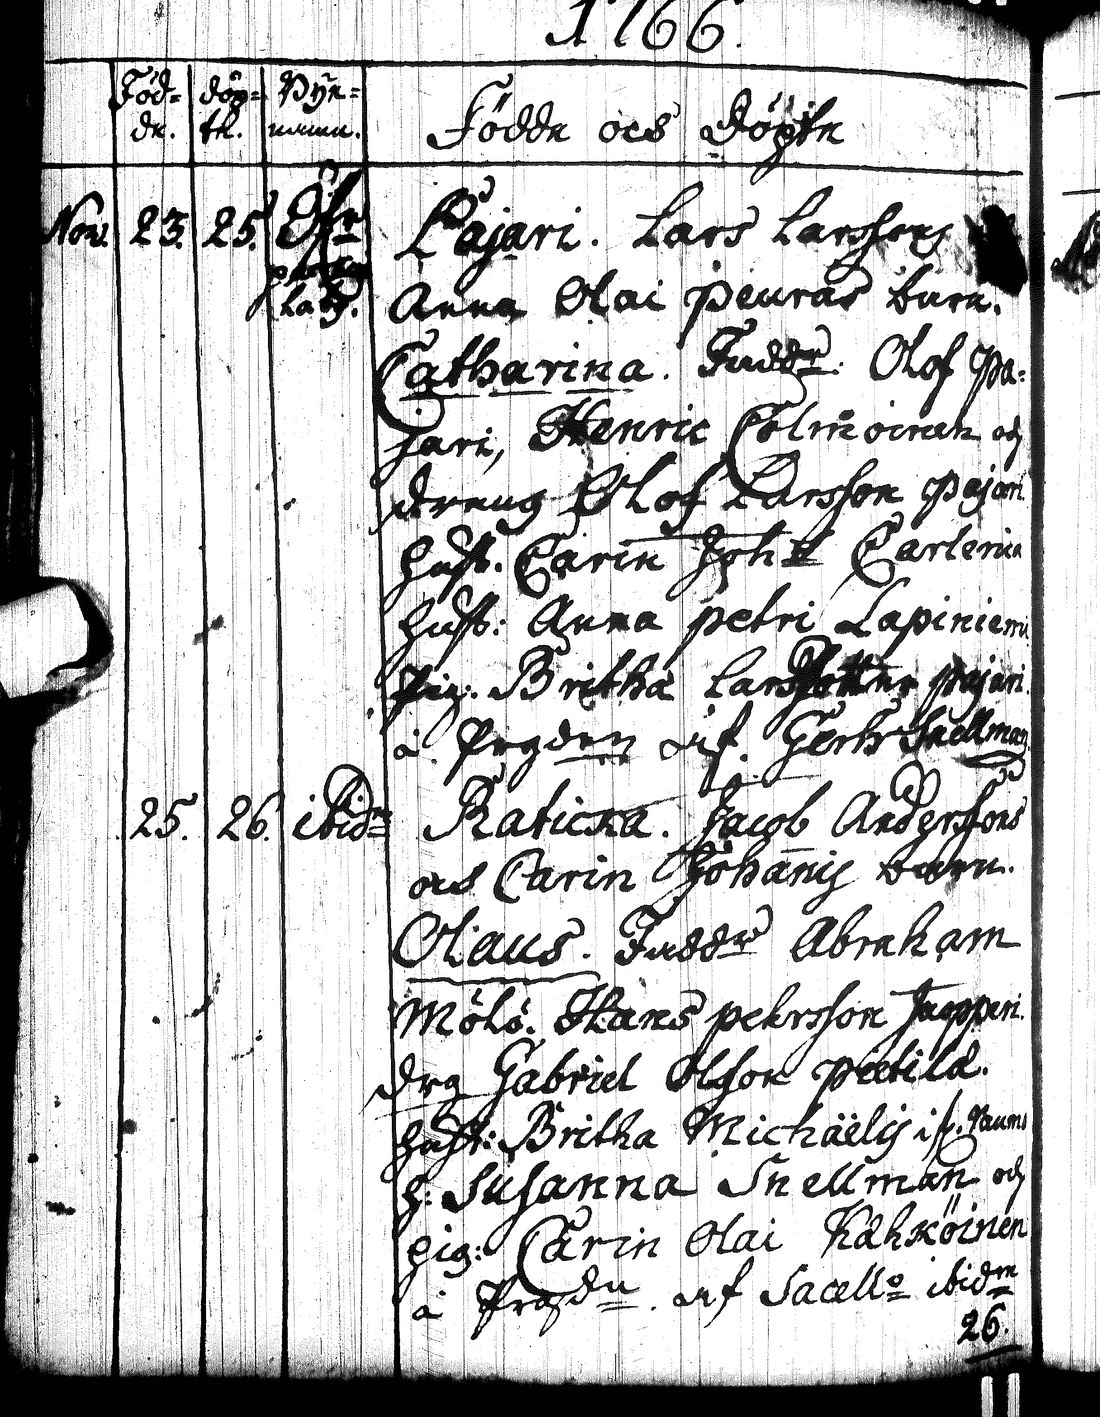 1766.
Föd= döp= Byn=
de. te. namn.
Födde och Döpte
Nov. 23. 25. Öfr Pajari. Lars Larssons
Anna Olai Peuras barn.
Catharina. Faddr. Olof Pa=
jari, Henric Colmoinen och
dreng Olof Larsson Pajari
hust. Carin Joh Carlerica
hust: Anna Petri Lapiniemi
Pig. Britha Lars Pajari.
i Prgden af Snellman
25. 26. ibidm Raticka. Jacob Anderssons
och Carin Johanis barn.
Olaus. Faddr Abraham
Mölö. Hans Pehrsson Juppuri.
drg Gabriel Olsson Pietilä.
hust: Britha Michäelis
h: Susanna Snellman och
pig: Carin Olai Kähköinen
i Prgdn af Sacello ibidm
26.